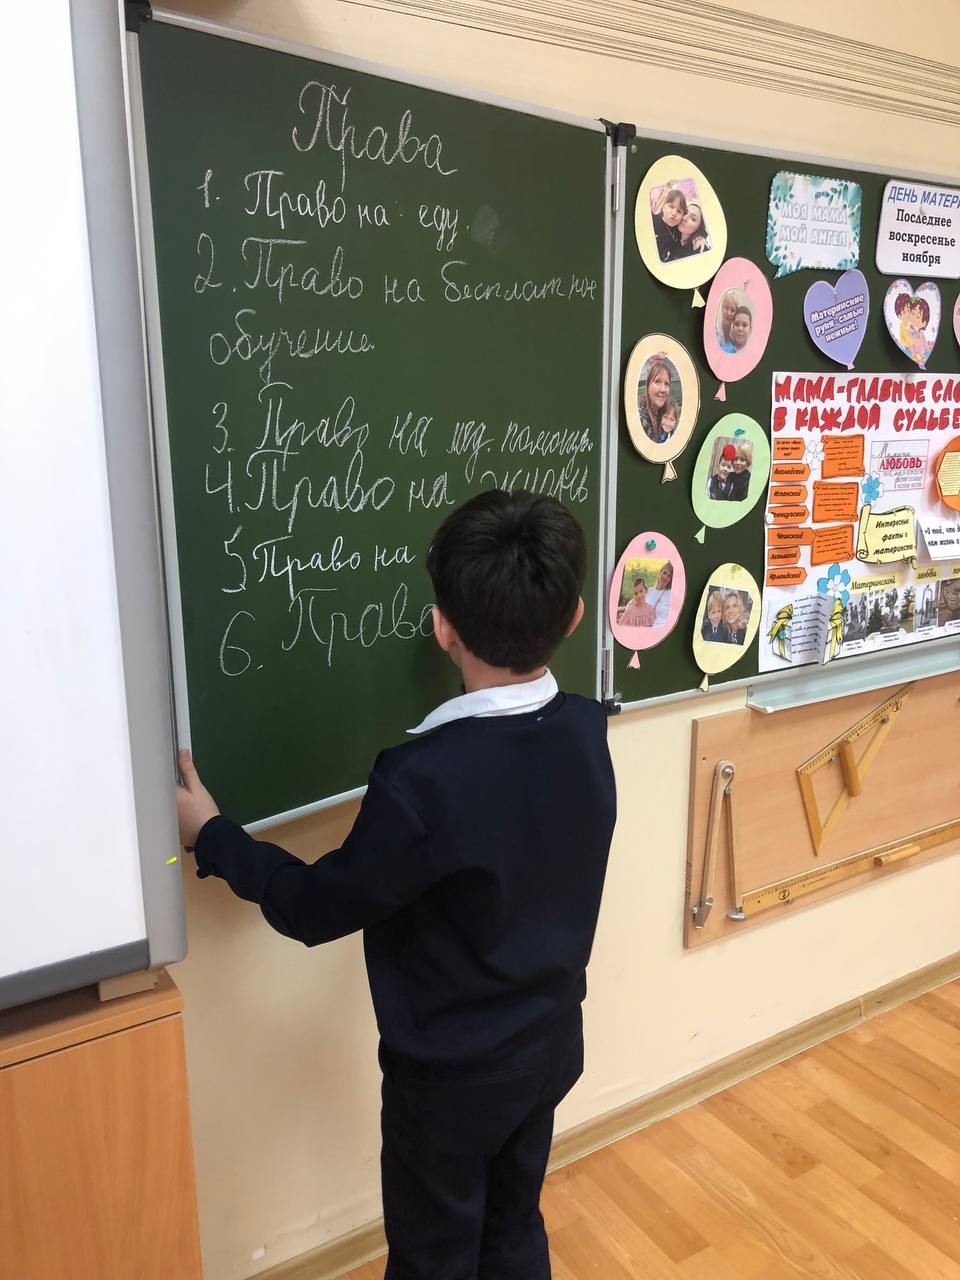 Права
1. Право на еду.
2. Право на бесплатное
обучение.
3. Право на мед. помощь.
4. Право на жизнь
5 Право на
6. Право
МОЯ МАМА
МОЙ АНГЕЛ
ДЕНЬ МАТЕРИ
Последнее
воскресенье
ноября
Материнские
руки - самые
нежные!
МАМА-ГЛАВНОЕ СЛО
В КАЖДОЙ СУДЬБЕ
Английский
Испанский
Французский
Чешский
Латышский
Ирландский
ЛЮБОВЬ
Интересные
факты о
материнстве
Материнской любви по